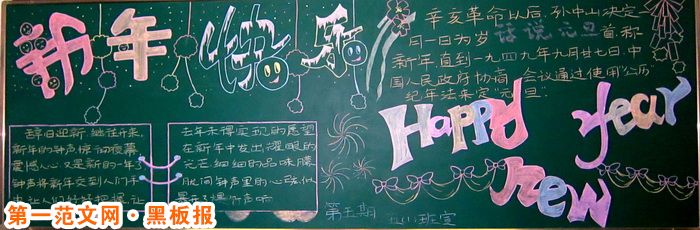 新年快乐
辛亥革命以后,孙中山决定
月一日为岁 话说元旦 首称
新年直到一九四九年九月廿七日,中
国人民政府协商 会议通过使用"公历
纪年法来定"元旦"
Happy year
new
辞旧迎新,继往开来,
新年的钟声惊动夜幕
震憾人心 又是新的一年了
钟声将新年交到人们手
中 让人们好好把握 让
去年未得实现的愿望
在新年中发出耀眼的
光芒 细细的品味朦
胧间钟声里的心弦似
第五期
五(八)班宣
第一范文网·黑板报